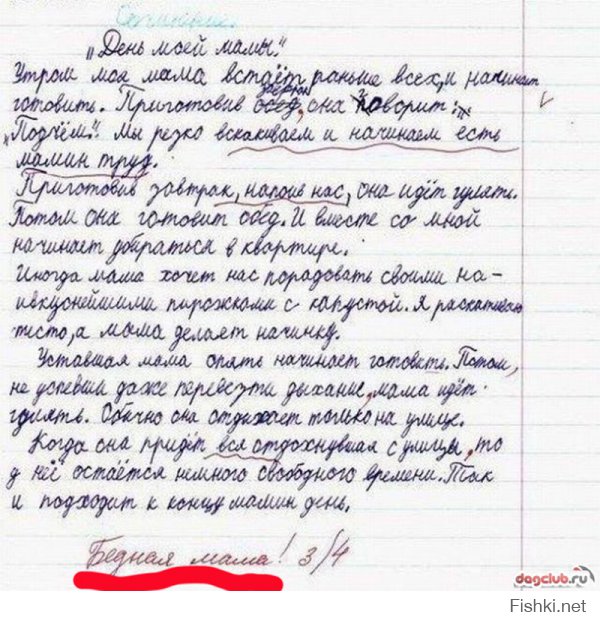 Сочинение.
„День моей мамы."
Утром моя мама встаёт раньше всех, и начинает
готовить. Приготовив обед, она говорит:
„Подъём." Мы резко вскакиваем и начинаем есть
мамин труд.
Приготовив завтрак, напоив нас, она идёт гулять.
Потом она готовит обед. И вместе со мной
начинает убираться в квартире.
Иногда мама хочет нас порадовать своими на-
ивкуснейшими пирожками с капустой. Я раскатываю
тесто, а мама делает начинку.
Уставшая мама опять начинает готовить. Потом,
не успевши даже перевезти дыхание, мама идёт
гулять. Обычно она отдыхает только на улице.
Когда она придёт вся отдохнувшая с улицы, то
у неё остаётся немного свободного времени. Так
и подходит к концу мамин день.
Бедная мама! 3/4
dogclub.ru
Fishki.net